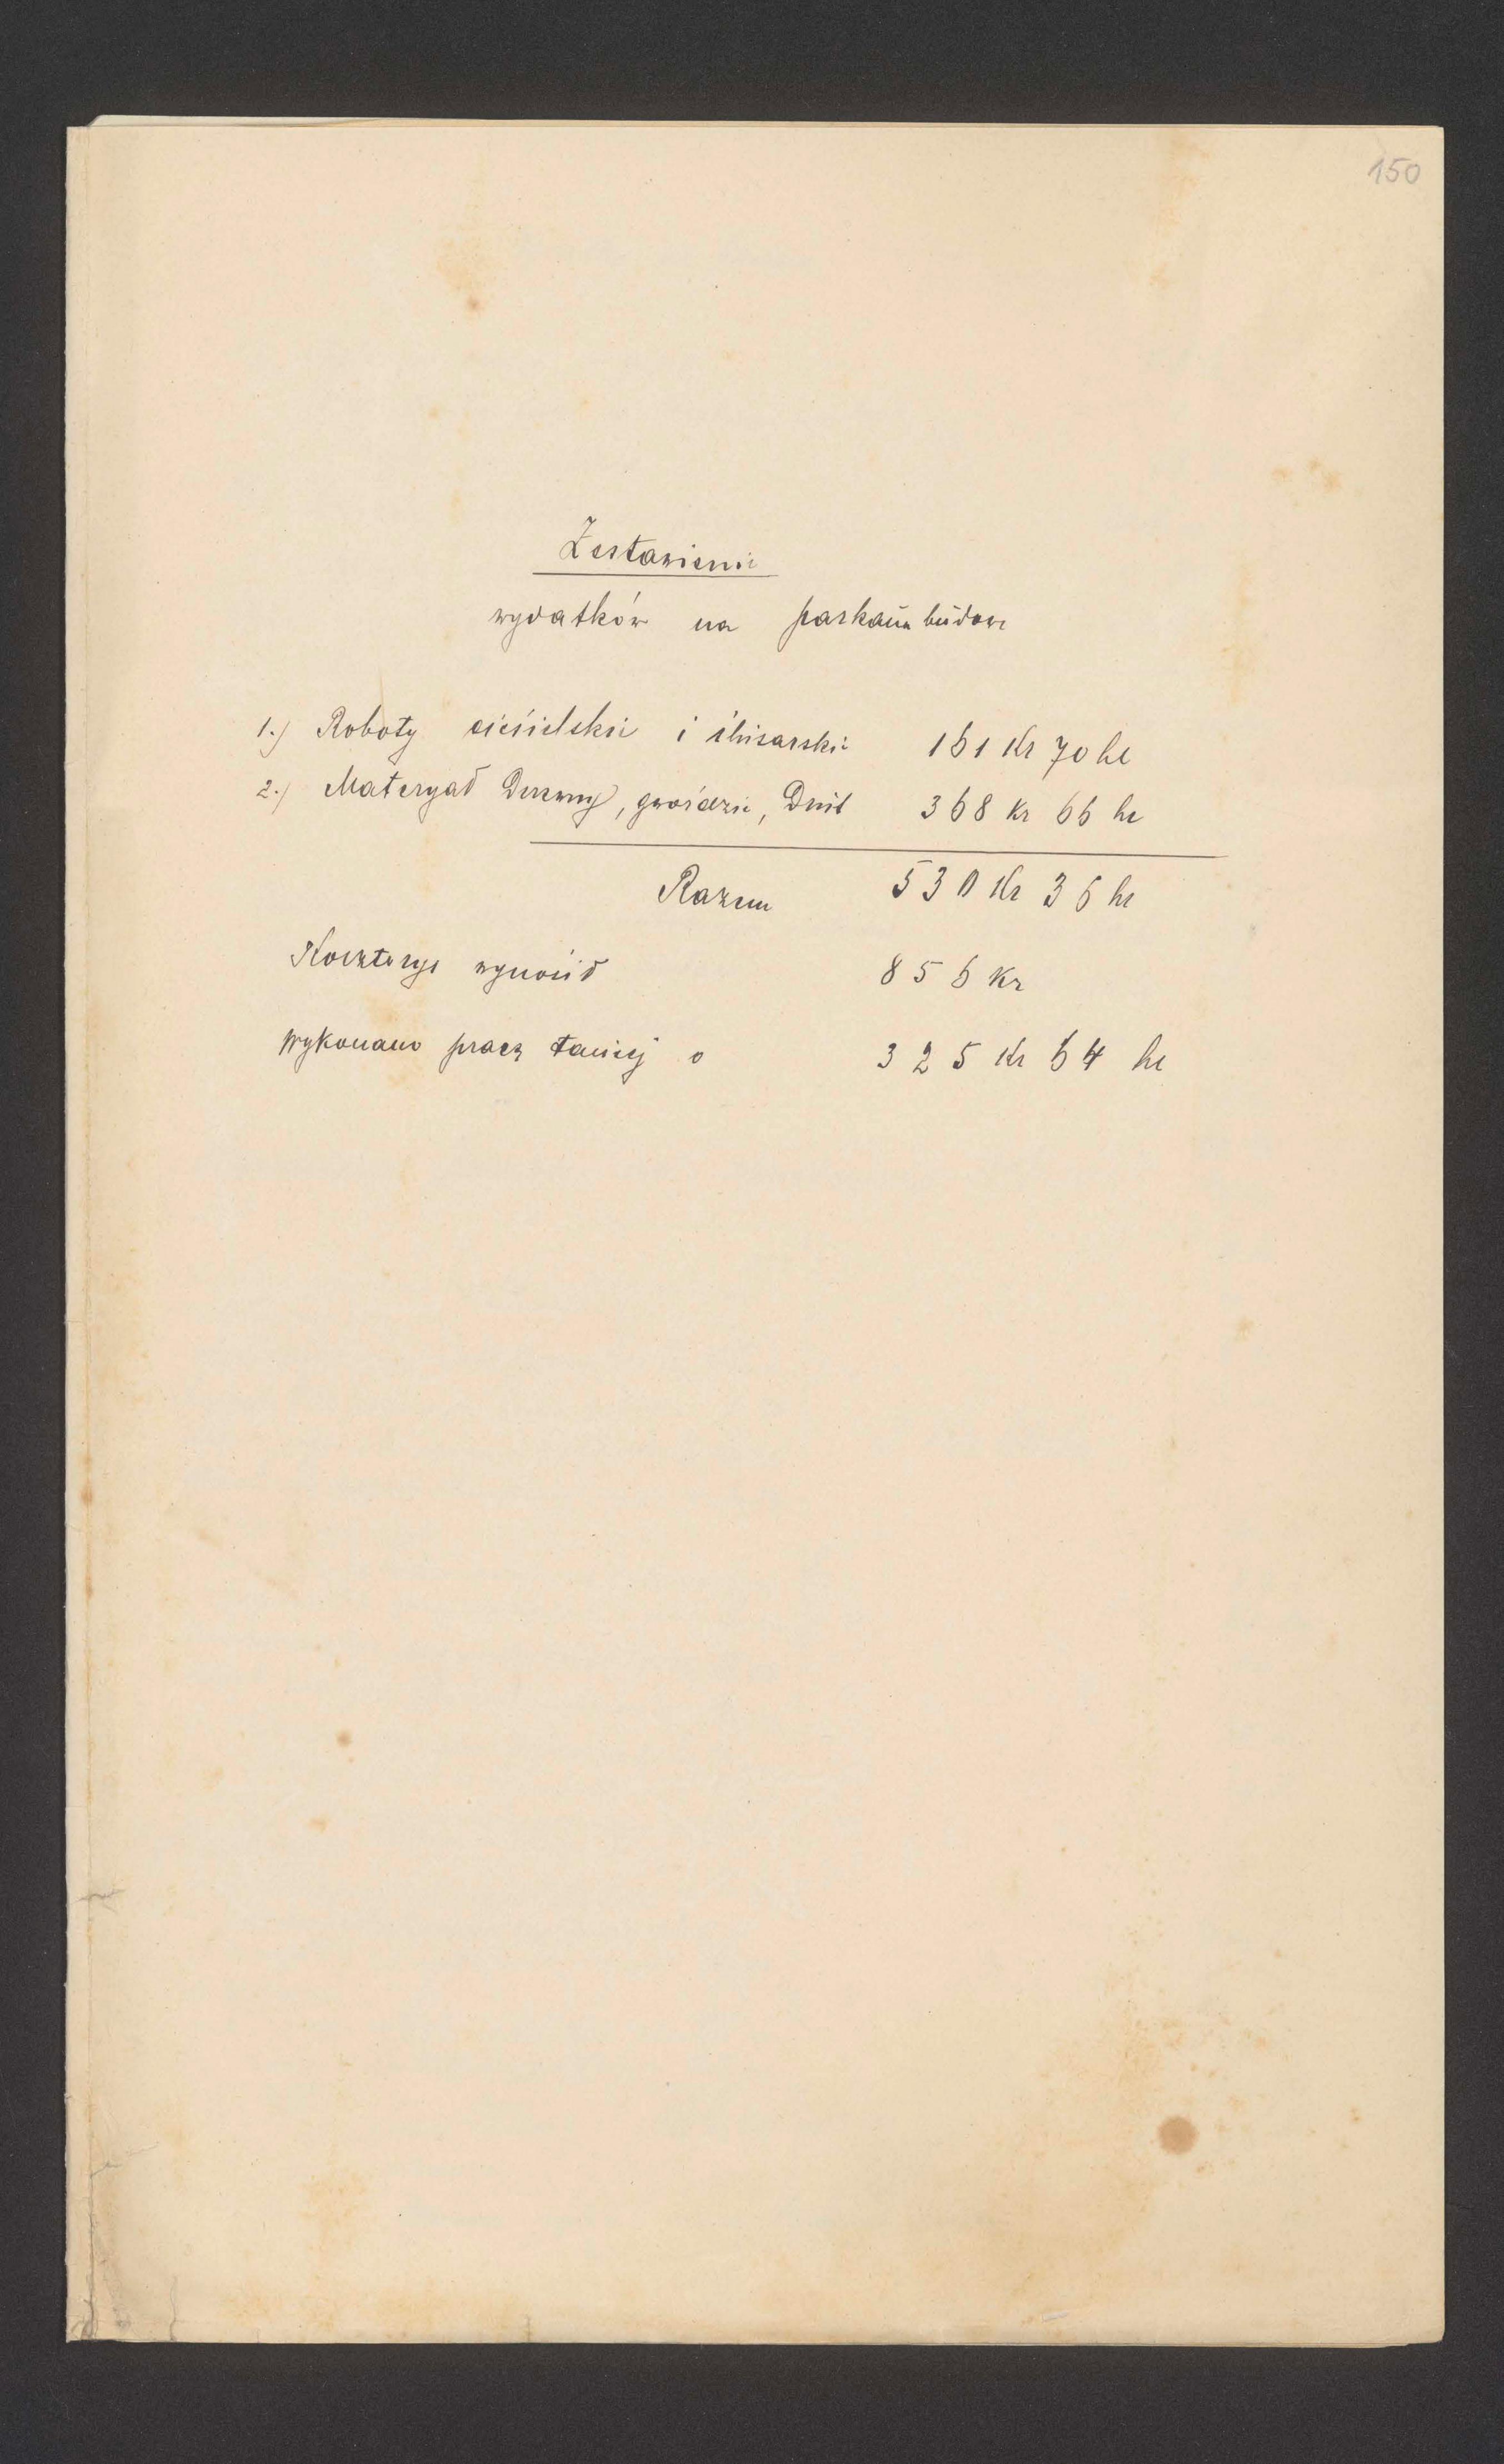 150
Zestawienie
wydatków na parkan budowę
1.) Roboty ciesielskie i ślusarskie 161 Kr 70 hl
2.) Materyał Drzewny, gwoździe, Drut 368 Kr 66 hl
Razem 530 Kr 36 hl
Kosztorys wynosił 856 Kr
Wykonano pracę taniej o 325 Kr 64 hl